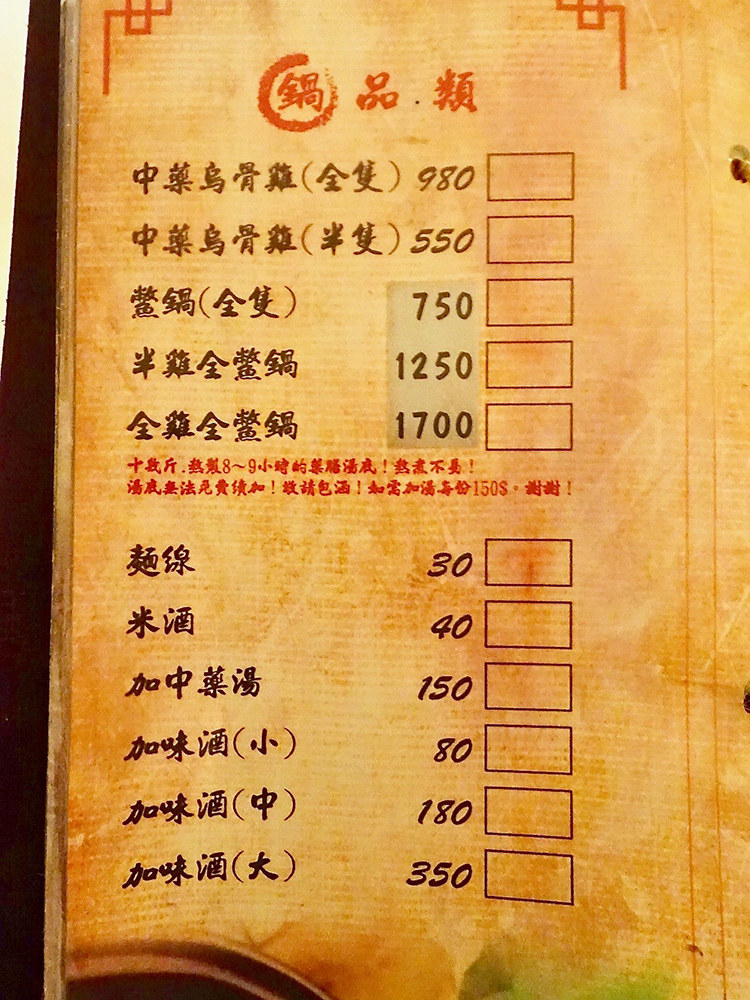 鍋品.類
中藥烏骨雞(全隻) 980
中藥烏骨雞(半隻) 550
鱉鍋(全隻) 750
半雞全鱉鍋 1250
全雞全鱉鍋 1700
十數斤.熬製8～9小時的藥膳湯底！熬煮不易！
湯底無法免費續加！敬請包涵！如需加湯每份150$。謝謝！
麵線 30
米酒 40
加中藥湯 150
加味酒(小) 80
加味酒(中) 180
加味酒(大) 350